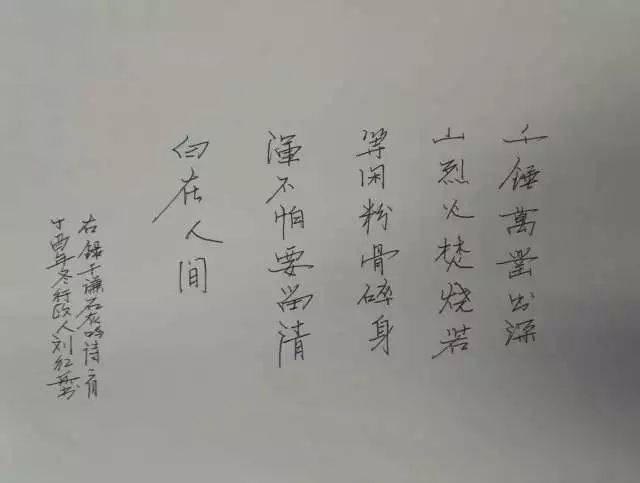 千锤萬鑿出深
山烈火焚烧若
等闲粉骨碎身
渾不怕要留清
白在人间
右錄于谦石灰吟诗一首
丁酉年冬行政人刘红英书